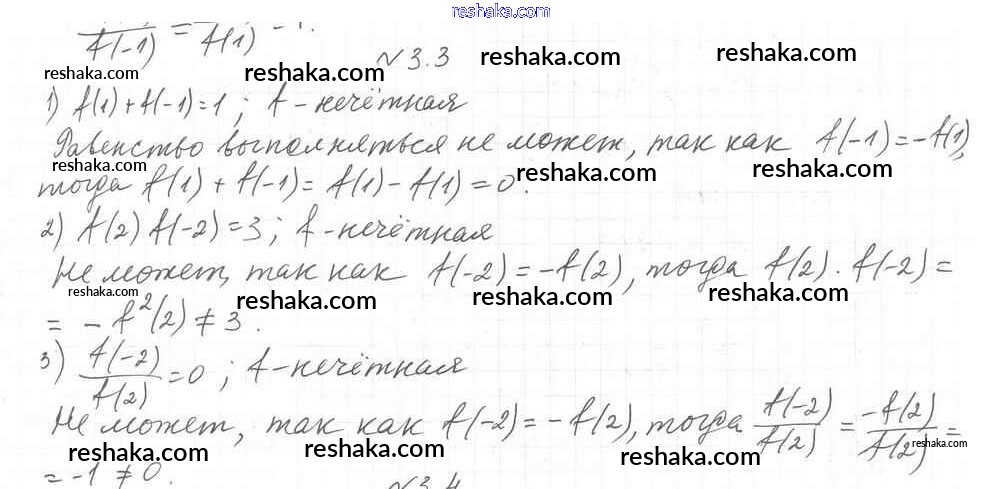 reshaka.com
f(-1) = f(1) = -1.
N 3.3
reshaka.com reshaka.com reshaka.com reshaka.com
1) f(1) + f(-1) = 1; f - нечётная
Равенство выполняться не может, так как f(-1) = -f(1),
reshaka.com reshaka.com reshaka.com reshaka.com
тогда f(1) + f(-1) = f(1) - f(1) = 0.
2) f(2) f(-2) = 3; f - нечётная
reshaka.com reshaka.com reshaka.com
Не может, так как f(-2) = -f(2), тогда f(2) · f(-2) =
reshaka.com reshaka.com reshaka.com reshaka.com
= - f²(2) ≠ 3.
3) f(-2)/f(2) = 0; f - нечётная
reshaka.com reshaka.com reshaka.com
Не может, так как f(-2) = -f(2), тогда f(-2)/f(2) = -f(2)/f(2) =
reshaka.com reshaka.com reshaka.com reshaka.com
= -1 ≠ 0.
N 3.4